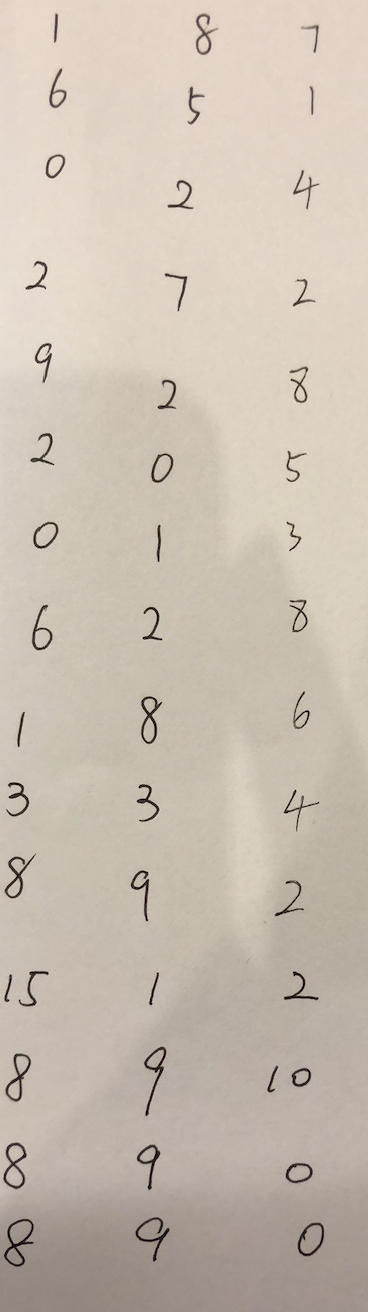 1 8 7
6 5 1
0 2 4
2 7 2
9 2 8
2 0 5
0 1 3
6 2 8
1 8 6
3 3 4
8 9 2
15 1 2
8 9 10
8 9 0
8 9 0